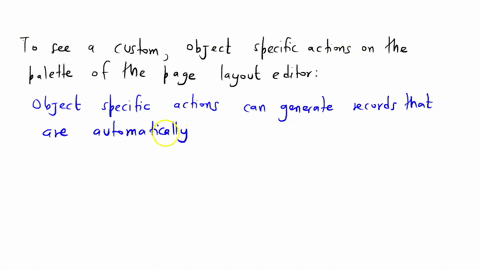 To see a custom, object specific actions on the
palette of the page layout editor:
Object specific actions can generate records that
are automatically